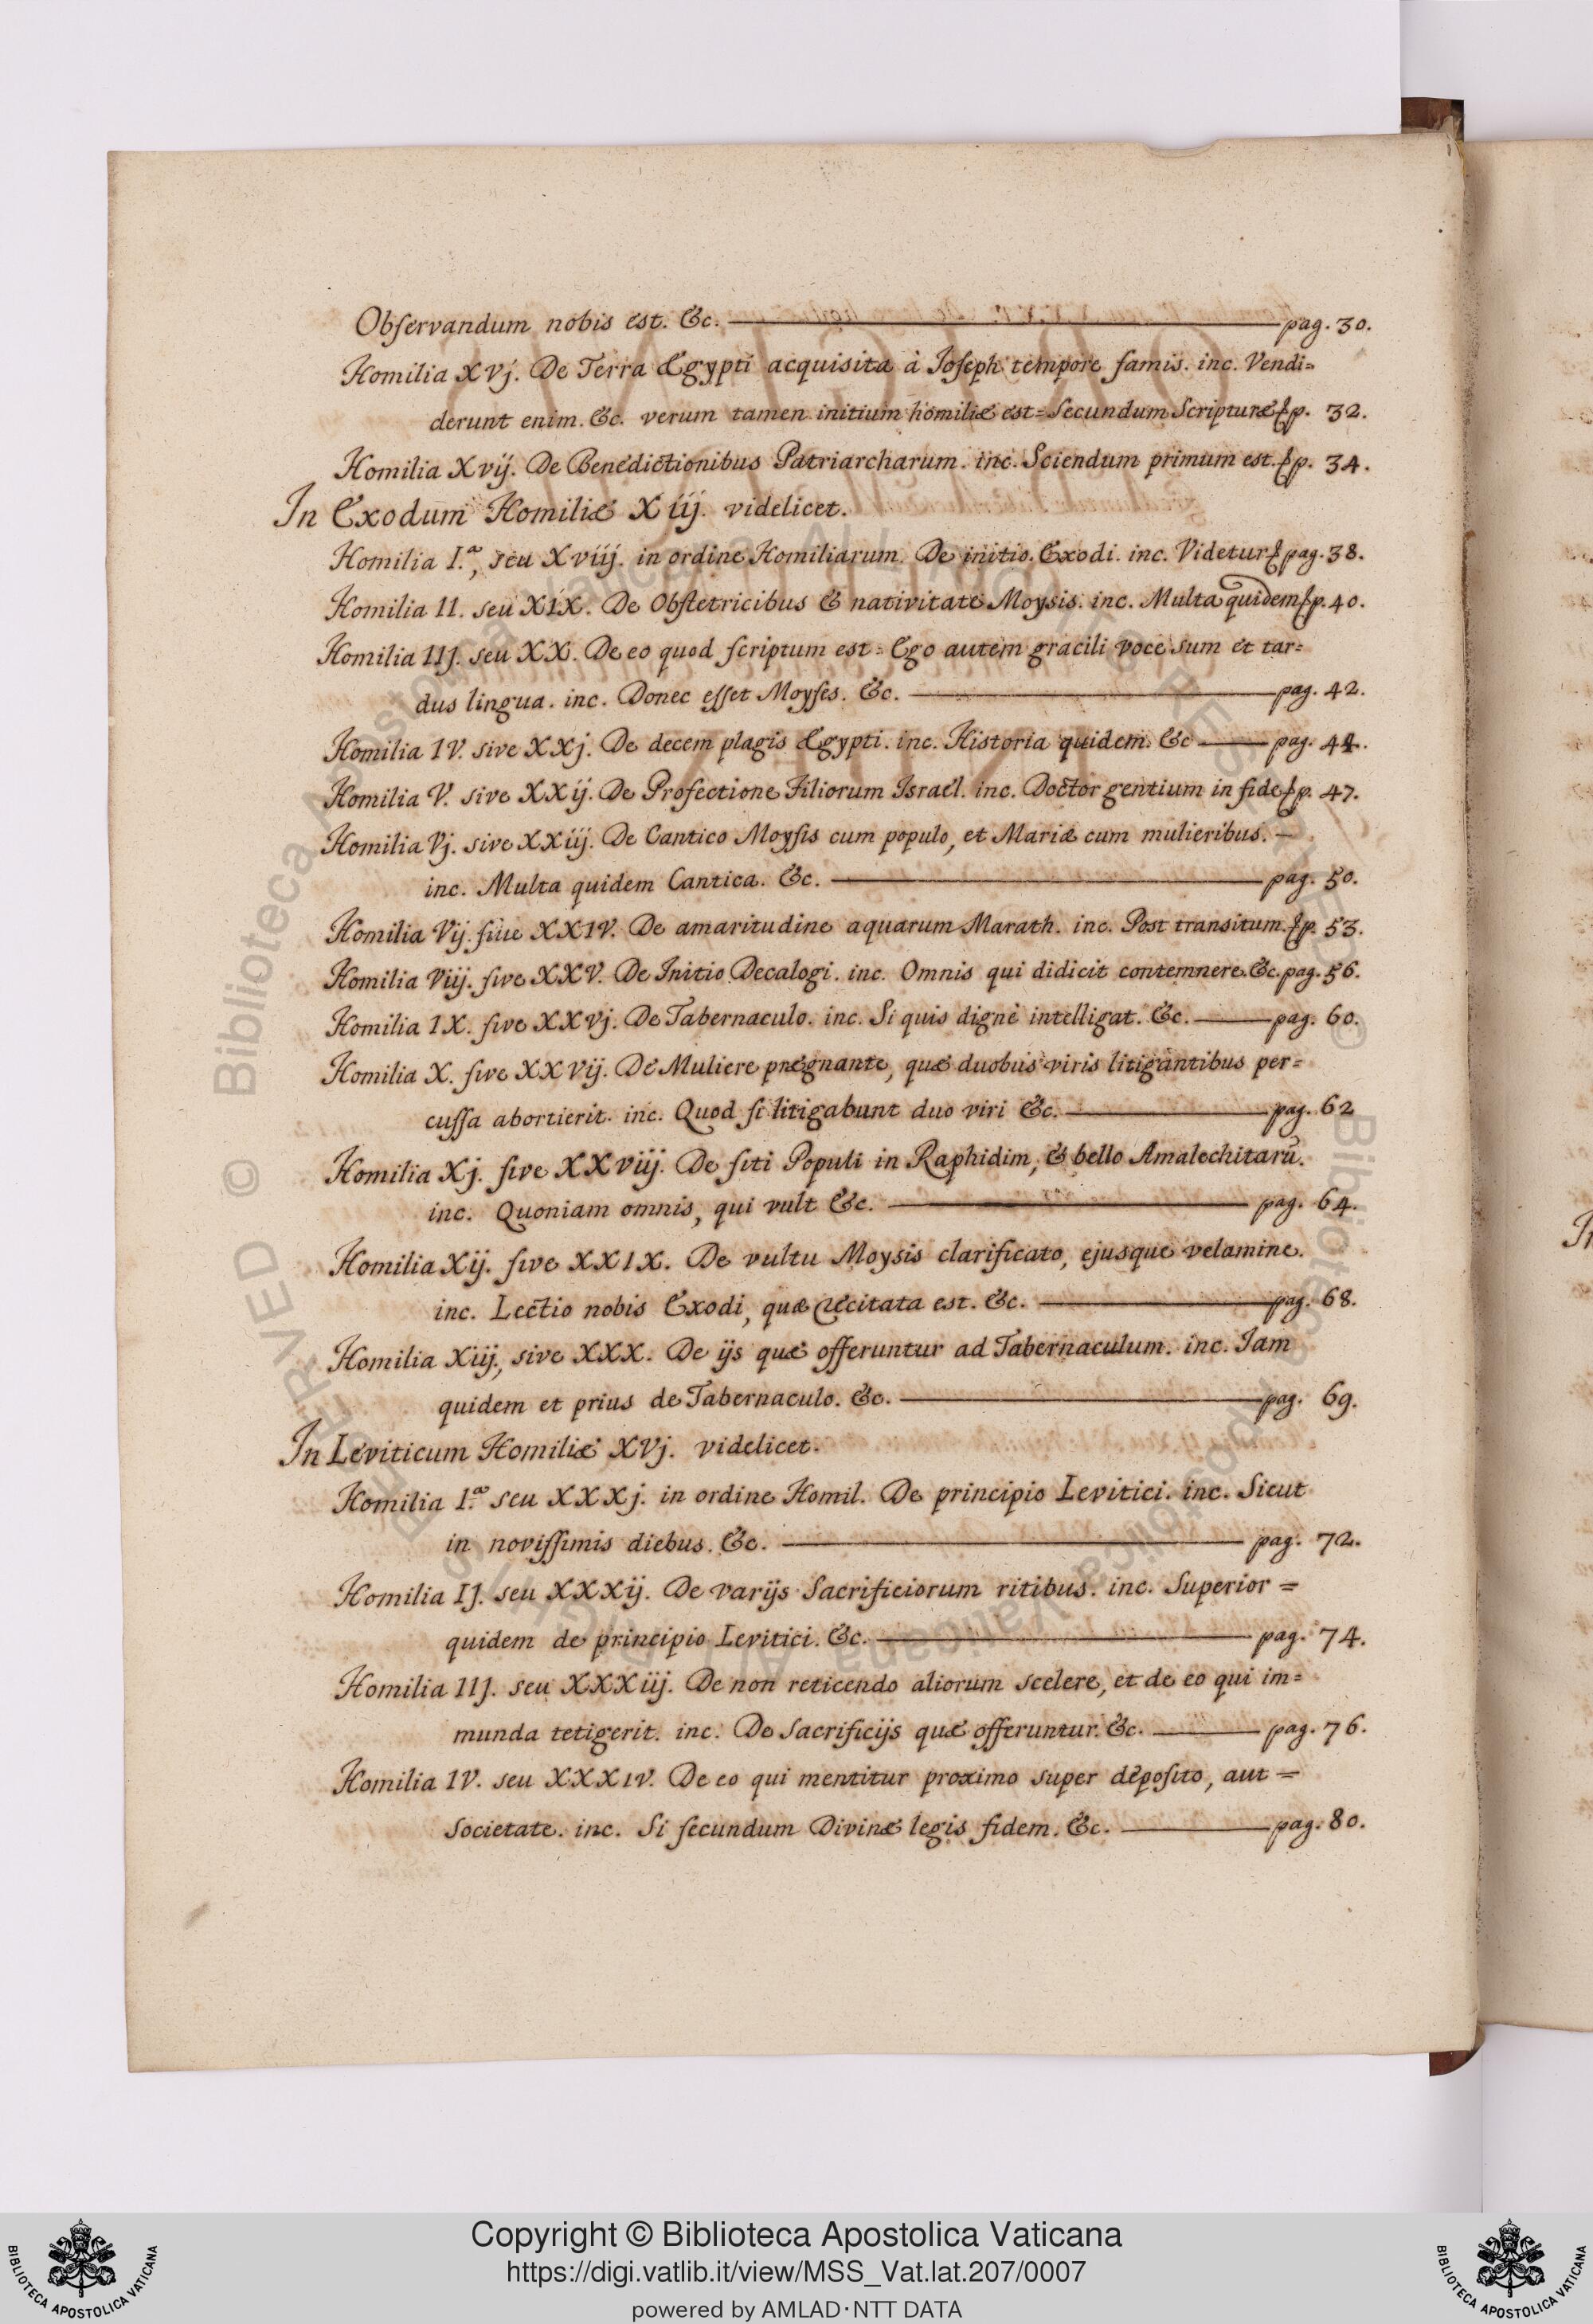 Observandum nobis est. &c. pag. 30.
Homilia XVj. De Terra Ægypti acquisita à Joseph tempore famis. inc. Vendi=
derunt enim. &c. verum tamen initium homiliæ est = Secundum Scripturæ & p. 32.
Homilia Xvij. De Benedictionibus Patriarcharum. inc. Sciendum primum est. & p. 34.
In Exodum Homiliæ Xiij. videlicet.
Homilia I.ª, seu Xviij. in ordine Homiliarum. De initio Exodi. inc. Videtur & pag. 38.
Homilia II. seu XIX. De Obstetricibus & nativitate Moysis. inc. Multa quidem & p. 40.
Homilia IIJ. seu XX. De eo quod scriptum est = Ego autem gracili voce sum et tar=
dus lingua. inc. Donec esset Moyses. &c. pag. 42.
Homilia IV. sive XXj. De decem plagis Ægypti. inc. Historia quidem. &c pag. 44.
Homilia V. sive XXij. De Profectione Filiorum Israel. inc. Doctor gentium in fide & p. 47.
Homilia Vj. sive XXiij. De Cantico Moysis cum populo, et Mariæ cum mulieribus. —
inc. Multa quidem Cantica. &c. pag. 50.
Homilia Vij. sive XXIV. De amaritudine aquarum Marath. inc. Post transitum. & p. 53.
Homilia Viij. sive XXV. De Initio Decalogi. inc. Omnis qui didicit contemnere. &c. pag. 56.
Homilia IX. sive XXVj. De Tabernaculo. inc. Si quis dignè intelligat. &c. pag. 60.
Homilia X. sive XXVij. De Muliere prægnante, quæ duobus viris litigantibus per=
cussa abortierit. inc. Quod si litigabunt duo viri &c. pag. 62
Homilia Xj. sive XXviij. De siti Populi in Raphidim, & bello Amalechitarū.
inc. Quoniam omnis, qui vult &c. pag. 64.
Homilia Xij. sive XXIX. De vultu Moysis clarificato, ejusque velamine.
inc. Lectio nobis Exodi, quæ recitata est. &c. pag. 68.
Homilia Xiij, sive XXX. De ijs quæ offeruntur ad Tabernaculum. inc. Jam
quidem et prius de Tabernaculo. &c. pag. 69.
In Leviticum Homiliæ XVj. videlicet.
Homilia I.ª seu XXXj. in ordine Homil. De principio Levitici. inc. Sicut
in novissimis diebus. &c. pag. 72.
Homilia IJ. seu XXXij. De varijs Sacrificiorum ritibus. inc. Superior =
quidem de principio Levitici. &c. pag. 74.
Homilia IIJ. seu XXXiij. De non reticendo aliorum scelere, et de eo qui im=
munda tetigerit. inc. De Sacrificijs quæ offeruntur. &c. pag. 76.
Homilia IV. seu XXXIV. De eo qui mentitur proximo super deposito, aut =
Societate. inc. Si secundum Divinæ legis fidem. &c. pag. 80.
Copyright © Biblioteca Apostolica Vaticana
https://digi.vatlib.it/view/MSS_Vat.lat.207/0007
powered by AMLAD·NTT DATA
BIBLIOTECA APOSTOLICA VATICANA
BIBLIOTECA APOSTOLICA VATICANA